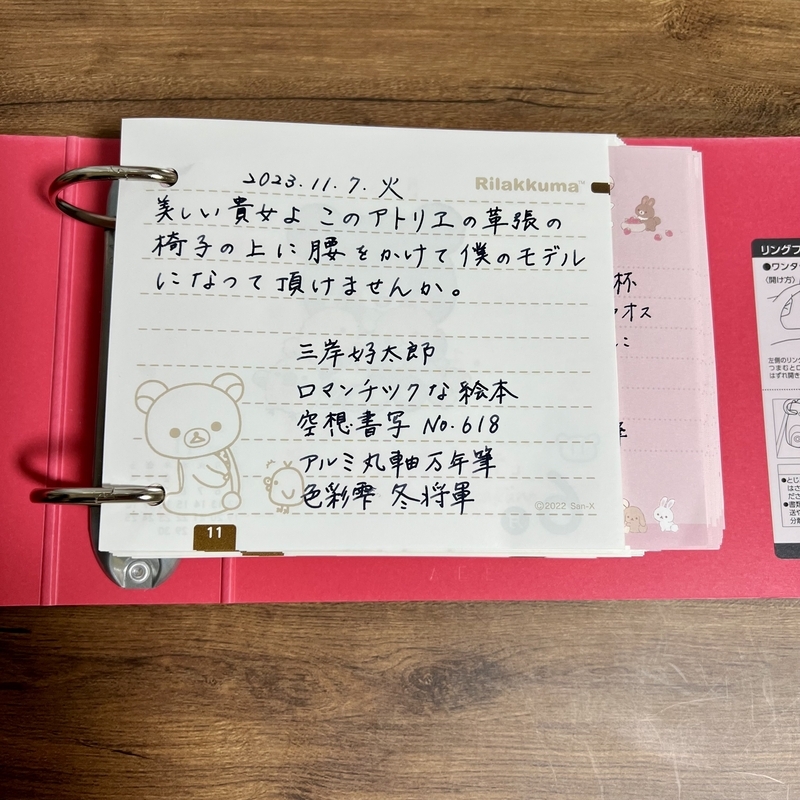 2023.11.7.火
Rilakkuma™
美しい貴女よ このアトリエの草張の
椅子の上に腰をかけて僕のモデル
になって頂けませんか。
三岸好太郎
ロマンチックな絵本
空想書写 No.618
アルミ丸軸万年筆
色彩雫 冬将軍
©2022 San-X
11
杯
オス
こ
リングフ
●ワンタ
〈開け方〉
左側のリン
つまむと
はずれ開き
●とじ
はさ
●書類
送や
分類